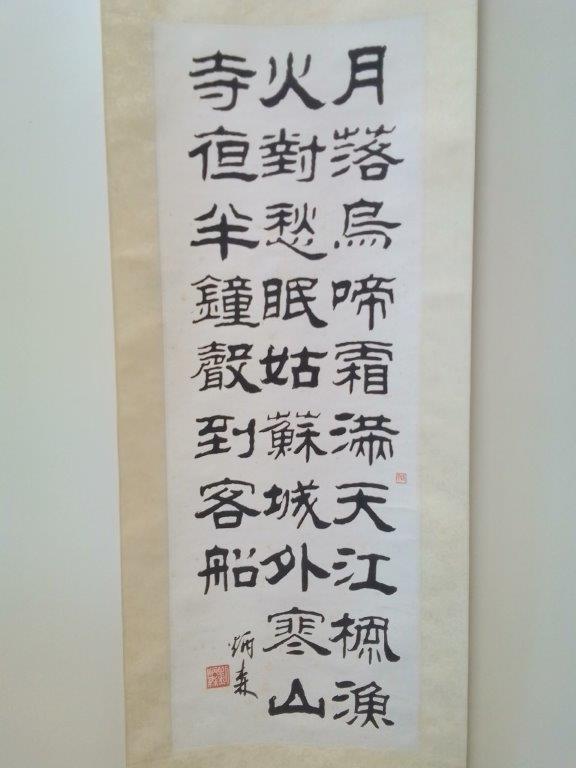 月落烏啼霜滿天江楓漁
火對愁眠姑蘇城外寒山
寺夜半鐘聲到客船
炳森